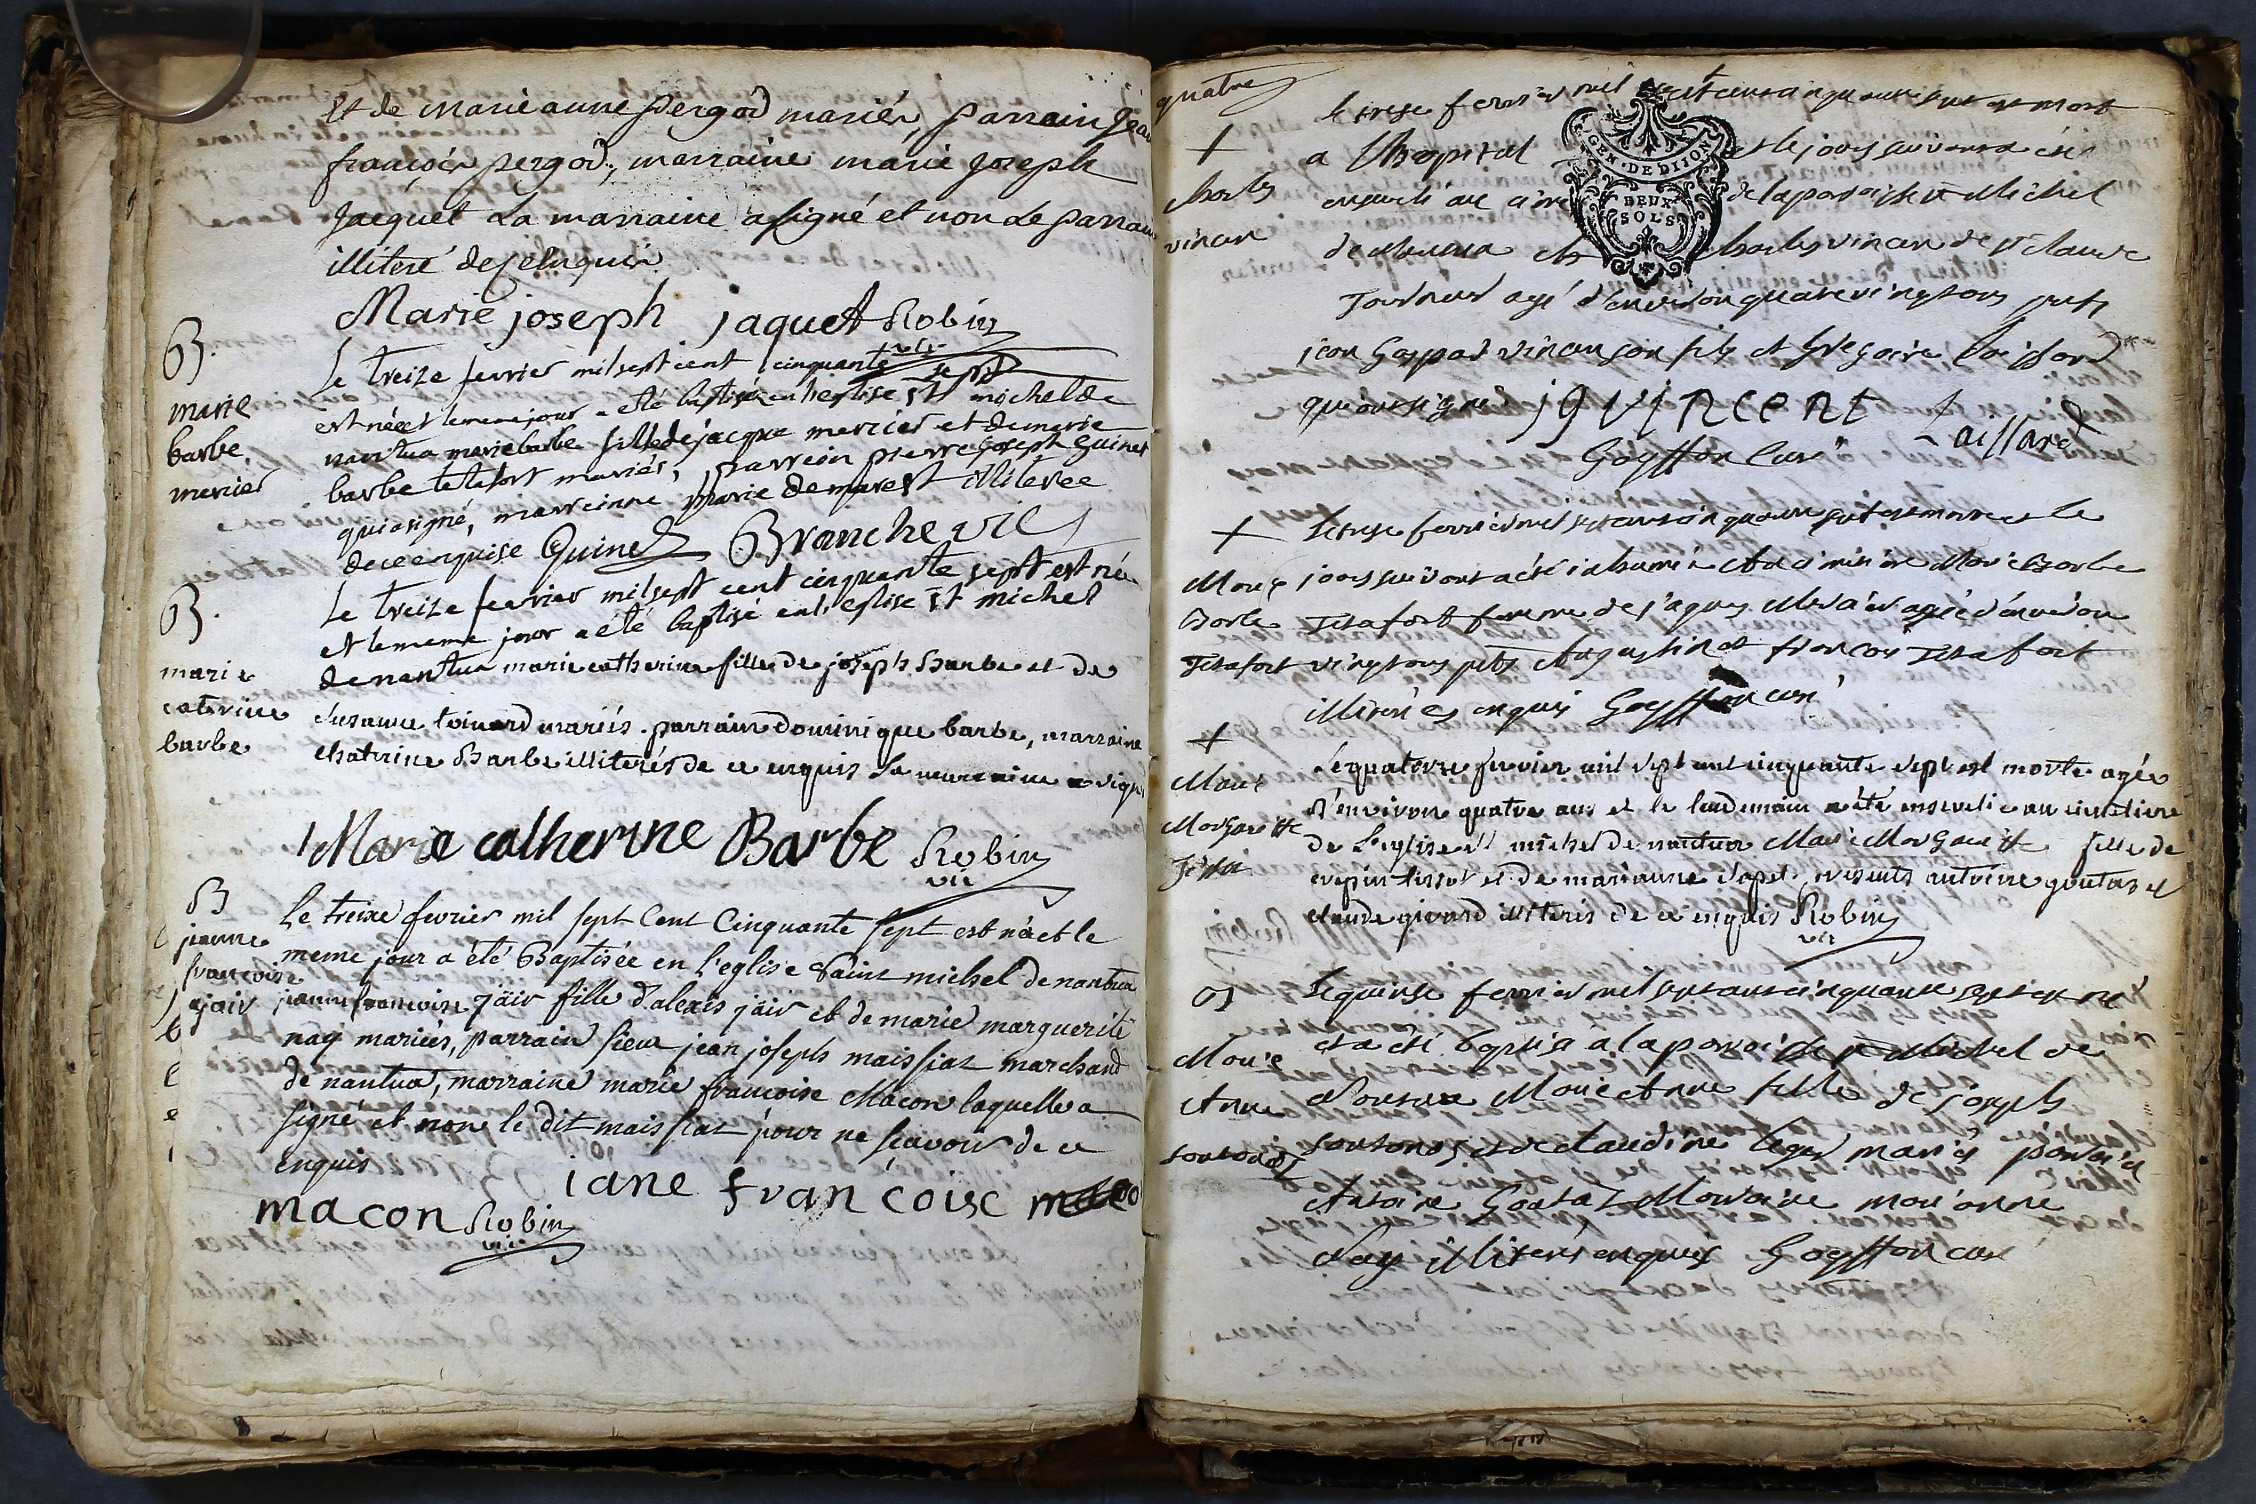 et de marie anne pergod mariés, parrain jean
françois pergod, marraine marie joseph
jacquet La marraine a signé et non le parrain
illiteré de ce enquis
Marie joseph jaquet Robin
vic
B.
marie
barbe
mercier
Le treize fevrier mil sept cent cinquante sept
est née et le meme jour a eté baptisée en l'eglise st michel de
nantua marie barbe fille de jacque mercier et de marie
barbe tetafort mariés, parrein pierre joseph Guinet
qui a signé, marreinne Marie demarest illiterée
de ce enquise Guinet Branche vic
B.
marie
caterine
barbe
Le treize fevrier mil sept cent cinquante sept est née
et le meme jour a été baptisé en l'eglise st michel
de nantua marie catherine fille de joseph Barbe et de
Susanne toinard mariés. parrain dominique barbe, marraine
chatrine Barbe illiterés de ce enquis la marraine a signé
Marie catherine Barbe Robin
vic
B
jeanne
francoise
jair
Le treize fevrier mil sept Cent Cinquante sept est née et le
meme jour a été Baptisée en l'eglise Saint michel de nantua
jeanne francoise jair fille d'alexis jair et de marie marguerite
naq mariés, parrain sieur jean joseph maissiat marchand
de nantua, marraine marie francoise Macon laquelle a
signé et non le dit maissiat pour ne scavoir de ce
enquis
iane francoise
macon Robin
vic
quatre
+
Charles
vincen
le trese fevrier mil sept cent cinquante sept est mort
a l'hopital et le jour suivant a été
enseveli au cime de la paroisse st Michel
de Nantua Charles vincen de st claude
Tourneur agé d'environ quatrevingt ans pnts
jean Gaspad vincen son fils et Gregoire Laissard
qui ont signé j g vincent Laissard
Goyffon Curé
GEN. DE DIJON
DEUX
SOLS
+
Marie
Barbe
Tetafort
Le trese fevrier mil sept cent cinquante sept est morte et le
jour suivant a été inhumée Au cimitière Marie Barbe
Tetafort femme de jaques Mercier agée d'environ
vingt ans pnts Augustin et francois Tetafort
illiterés enquis Goyffon curé
+
Marie
Margueritte
Tissot
Le quatorze fevrier mil sept cent cinquante sept est morte agée
d'environ quatre ans et le lendemain a été ensevelie au cimetiere
de l'eglise st michel de nantua Marie Margueritte fille de
crepin tissot et de marianne capet, presents antoine goutas et
claude girard illiterés de ce enquis Robin
vic
B
Marie
Anne
Le quinse fevrier mil sept cent cinquante sept est né
et a été baptisé à la paroisse st Michel de
Nantua Marie Anne fille de joseph
et de claudine leger mariés parrain
Antoine Goutaz Marraine mari anne
illiterés enquis Goyffon curé